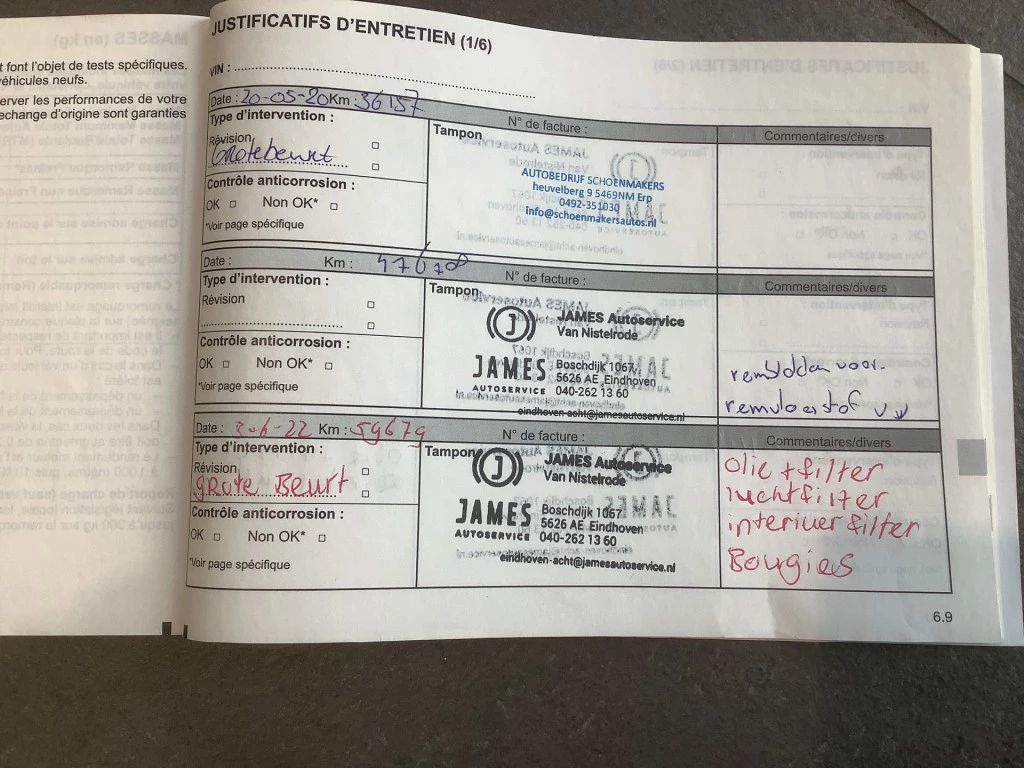 t font l'objet de tests spécifiques.
véhicules neufs.
erver les performances de votre
echange d'origine sont garanties
JUSTIFICATIFS D'ENTRETIEN (1/6)
VIN :
Date : 20-05-20 Km : 36157
N° de facture :
Type d'intervention :
Révision
Grotebeurt
Contrôle anticorrosion :
OK Non OK*
*Voir page spécifique
Tampon
AUTOBEDRIJF SCHOENMAKERS
heuvelberg 9 5469NM Erp
0492-351030
info@schoenmakersautos.nl
Commentaires/divers
Date : Km :
N° de facture :
Type d'intervention :
Révision
Contrôle anticorrosion :
OK Non OK*
*Voir page spécifique
Tampon
JAMES Autoservice
Van Nistelrode
JAMES
AUTOSERVICE
Boschdijk 1067
5626 AE Eindhoven
040-262 13 60
eindhoven-acht@jamesautoservice.nl
Commentaires/divers
remblokken voor.
remvloeistof
Date : Km : 59679
N° de facture :
Type d'intervention :
Révision
grote Beurt
Contrôle anticorrosion :
OK Non OK*
*Voir page spécifique
Tampon
JAMES Autoservice
Van Nistelrode
JAMES
AUTOSERVICE
Boschdijk 1067
5626 AE Eindhoven
040-262 13 60
eindhoven-acht@jamesautoservice.nl
Commentaires/divers
olie + filter
luchtfilter
interieur filter
Bougies
6.9